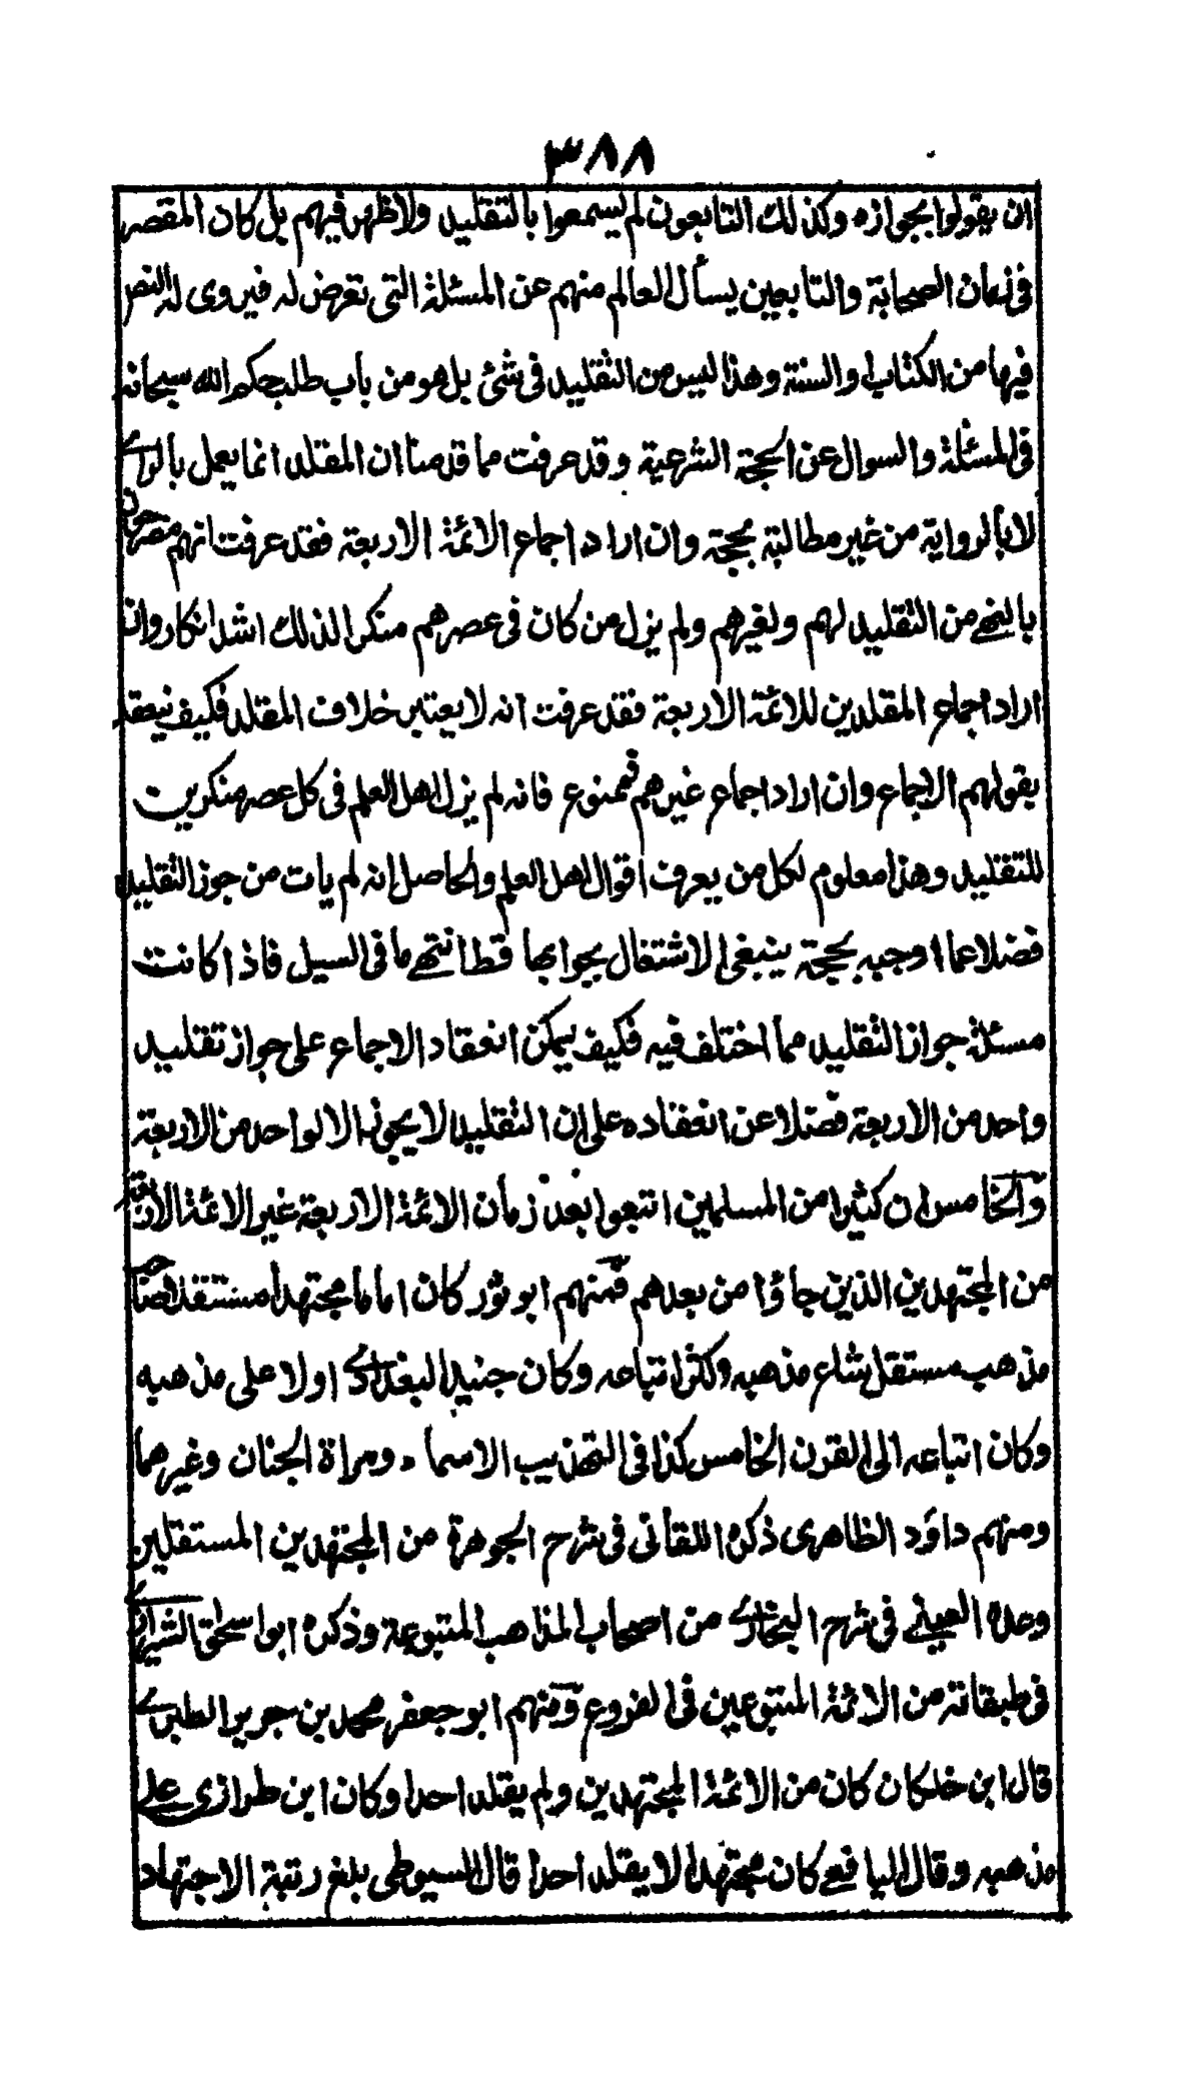 ٣٨٨
ان يقولوا بجوازه وكذلك التابعون لم يسمعوا بالتقليد ولا ظهر فيهم بل كان المقصر
فى زمان الصحابة والتابعين يسأل العالم منهم عن المسئلة التى تعرض له فيروى له النص
فيها من الكتاب او السنة وهذا ليس من التقليد فى شئ بل هو من باب طلب حكم الله سبحانه
فى المسئلة والسوال عن الحجة الشرعية وقد عرفت مما قدمنا ان المقلد انما يعمل بالراى
لا بالرواية من غير مطالبة بحجة وان اراد اجماع الائمة الاربعة فقد عرفت انهم مصرحون
بالنهى من التقليد لهم ولغيرهم ولم يزل من كان فى عصرهم منكرا لذلك اشد انكار وان
اراد اجماع المقلدين للائمة الاربعة فقد عرفت انه لا يعتبر خلاف المقلد فكيف ينعقد
بقولهم الاجماع وان اراد اجماع غيرهم فممنوع فانه لم يزل اهل العلم فى كل عصر منكرين
للتقليد وهذا معلوم لكل من يعرف اقوال اهل العلم والحاصل انه لم يات من جوز التقليد
فضلا عما اوجبه بحجة ينبغى الاشتغال بجوابها قط انتهى ما فى السيل فاذا كانت
مسئلة جواز التقليد مما اختلف فيه فكيف يمكن انعقاد الاجماع على جواز تقليد
واحد من الاربعة فضلا عن انعقاده على ان التقليد لا يجوز الا لواحد من الاربعة
والخامس ان كثيرا من المسلمين اتبعوا بعد زمان الائمة الاربعة غير الائمة الاربعة
من المجتهدين الذين جاؤا من بعدهم فمنهم ابو ثور كان اماما مجتهدا مستقلا صاحب
مذهب مستقل شاع مذهبه وكثر اتباعه وكان جنيد البغدادى اولا على مذهبه
وكان اتباعه الى القرن الخامس كذا فى التهذيب الاسماء ومراة الجنان وغيرهما
ومنهم داؤد الظاهرى ذكره اللقانى فى شرح الجوهرة من المجتهدين المستقلين
وعده العينى فى شرح البخارى من اصحاب المذاهب المتبوعة وذكره ابو اسحق الشيرازى
فى طبقاته من الائمة المتبوعين فى الفروع ومنهم ابو جعفر محمد بن جرير الطبرى
قال ابن خلكان كان من الائمة المجتهدين ولم يقلد احدا وكان ابن طرازى على
مذهبه وقال اليافعى كان مجتهدا لا يقلد احدا قال السيوطى بلغ رتبة الاجتهاد